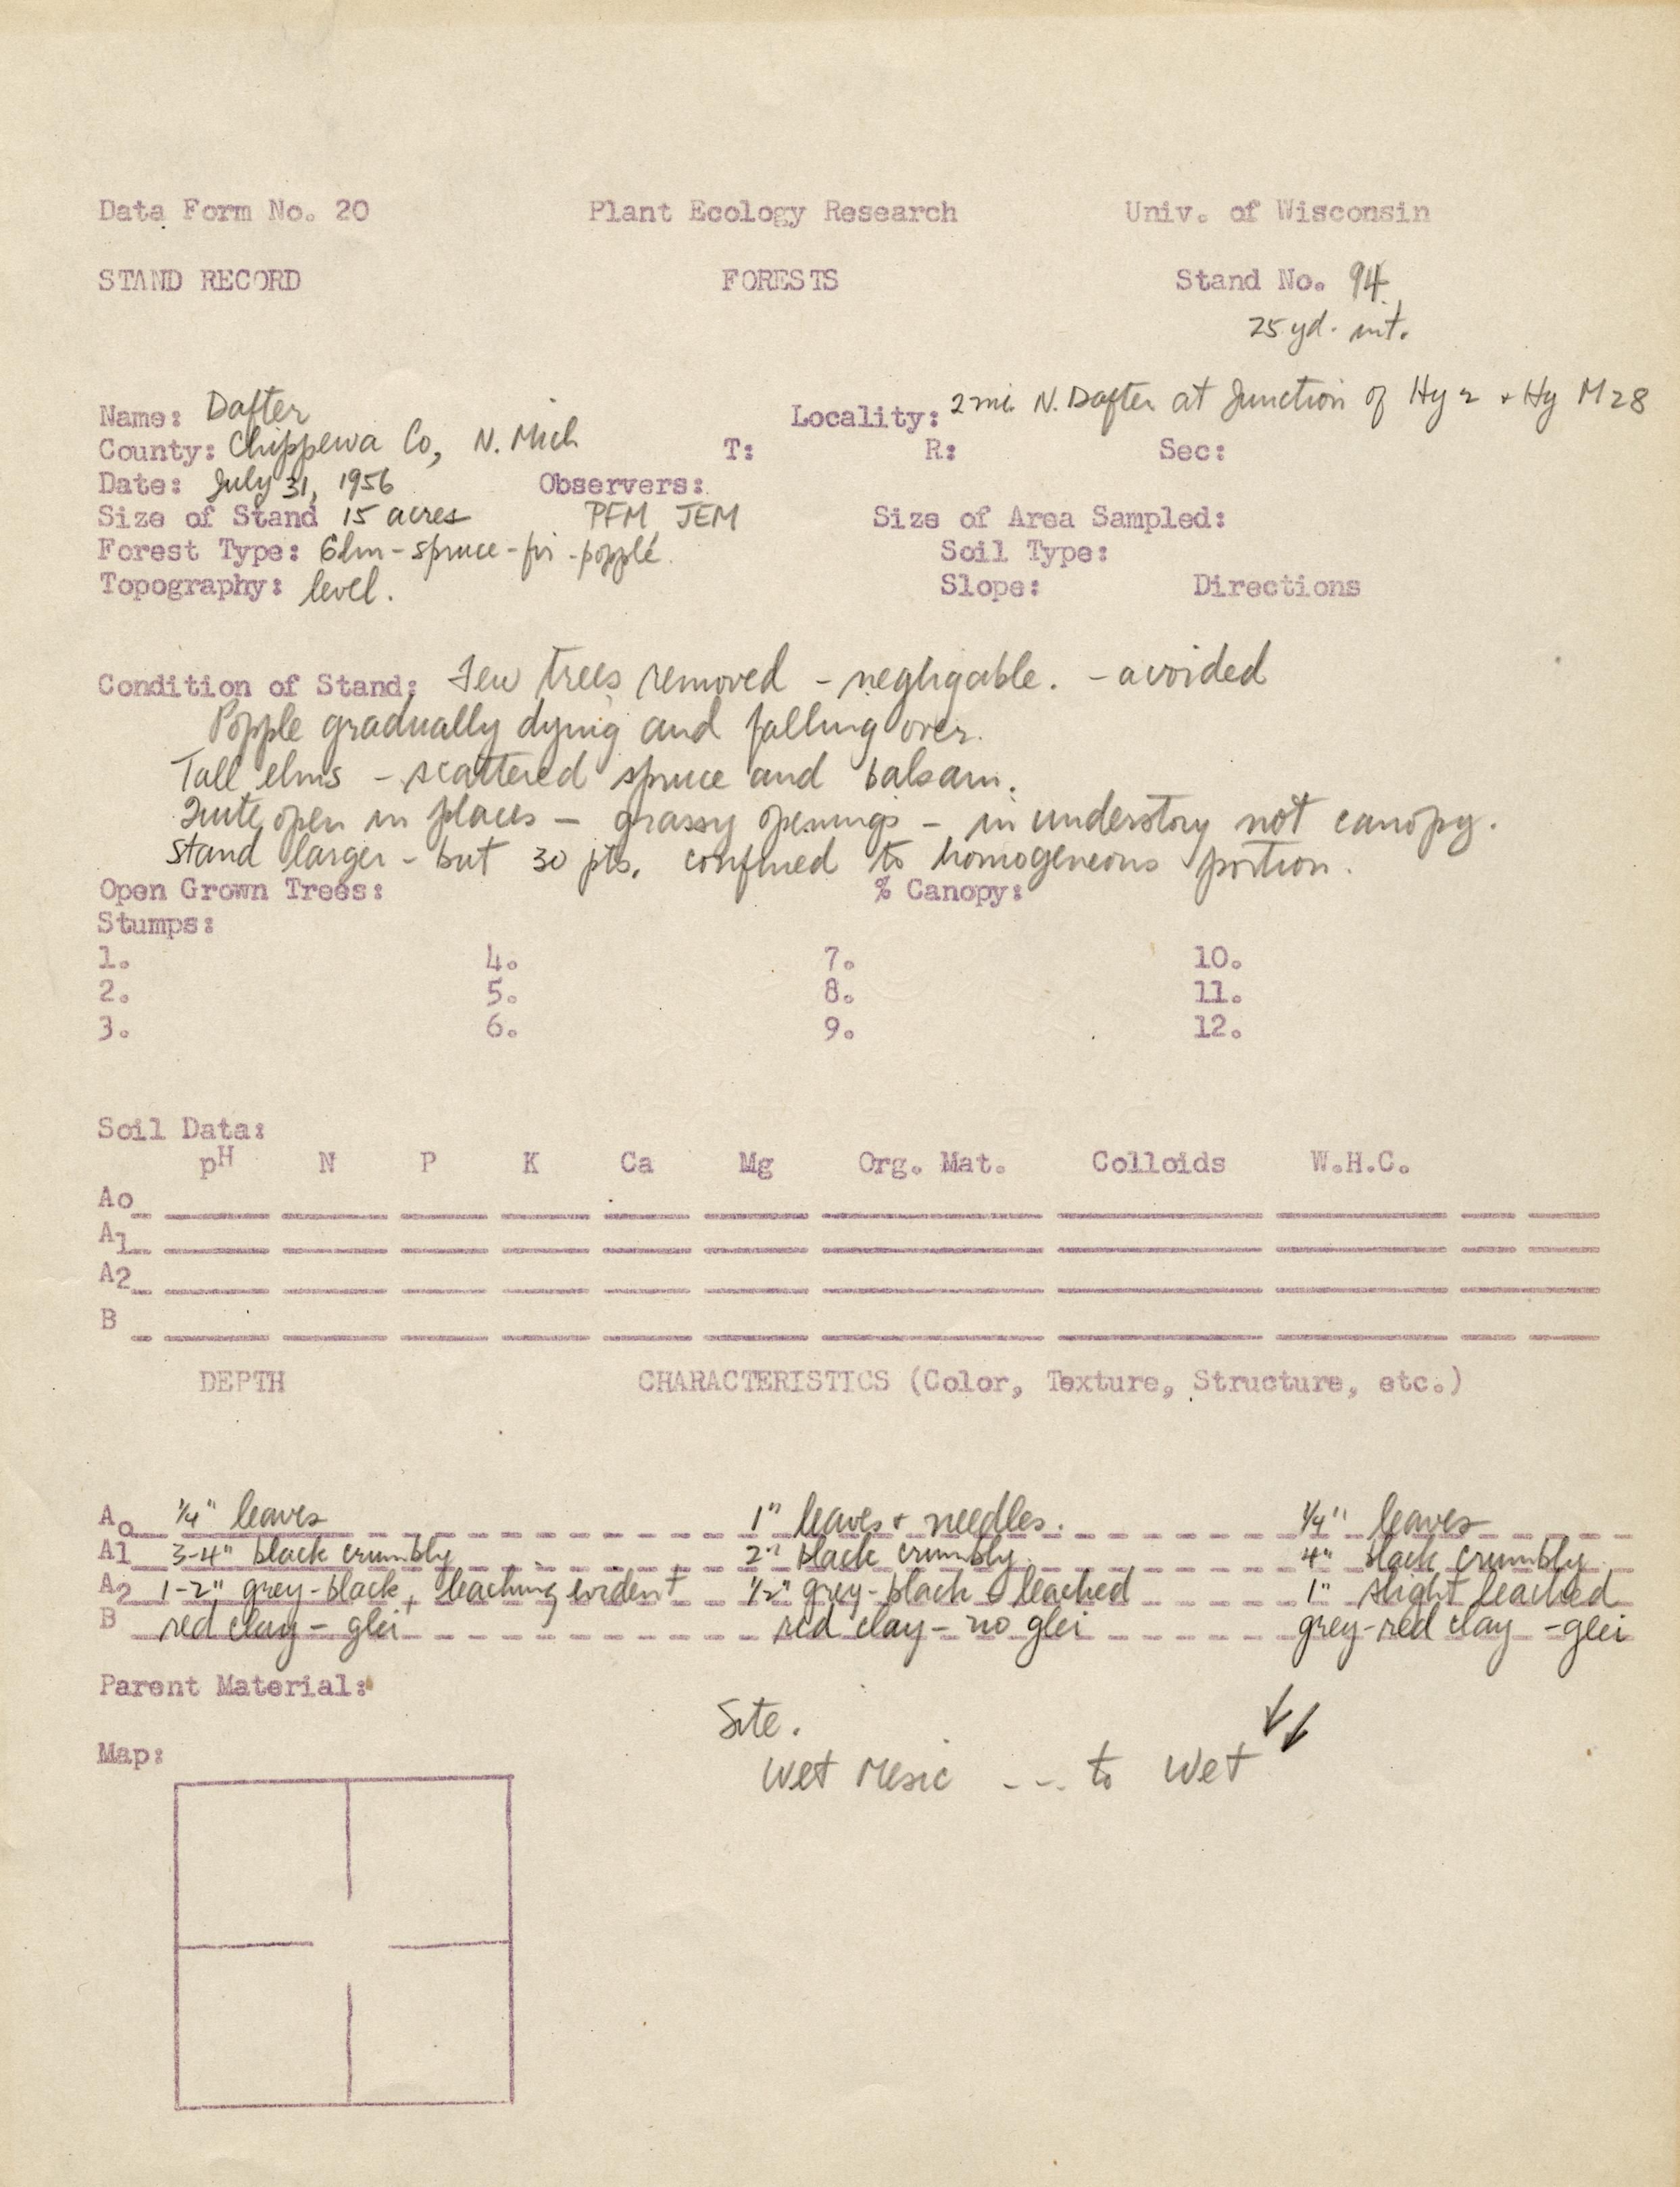 Data Form No. 20 Plant Ecology Research Univ. of Wisconsin
STAND RECORD FORESTS Stand No. 94
25 yd. int.
Name: Dafter Locality: 2 mi. N. Dafter at Junction of Hy 2 + Hy M28
County: Chippewa Co, N. Mich T: R: Sec:
Date: July 31, 1956 Observers:
Size of Stand 15 acres PFM JEM Size of Area Sampled:
Forest Type: Elm-spruce-fir-popple Soil Type:
Topography: level. Slope: Directions
Condition of Stand: Few trees removed - negligable. - avoided
Popple gradually dying and falling over.
Tall elms - scattered spruce and balsam.
Quite open in places - grassy openings - in understory not canopy.
Stand larger - but 30 pts. confined to homogeneous portion.
Open Grown Trees: % Canopy:
Stumps:
1. 4. 7. 10.
2. 5. 8. 11.
3. 6. 9. 12.
Soil Data:
pH N P K Ca Mg Org. Mat. Colloids W.H.C.
Ao
A1
A2
B
DEPTH CHARACTERISTICS (Color, Texture, Structure, etc.)
Ao 1/4" leaves 1" leaves + needles. 1/4" leaves
A1 3-4" black crumbly 2" black crumbly 4" black crumbly
A2 1-2" grey-black, leaching evident 1/2" grey-black leached 1" slight leached
B red clay - glei red clay - no glei grey-red clay - glei
Parent Material:
Site.
Map:
Wet Mesic --- to Wet